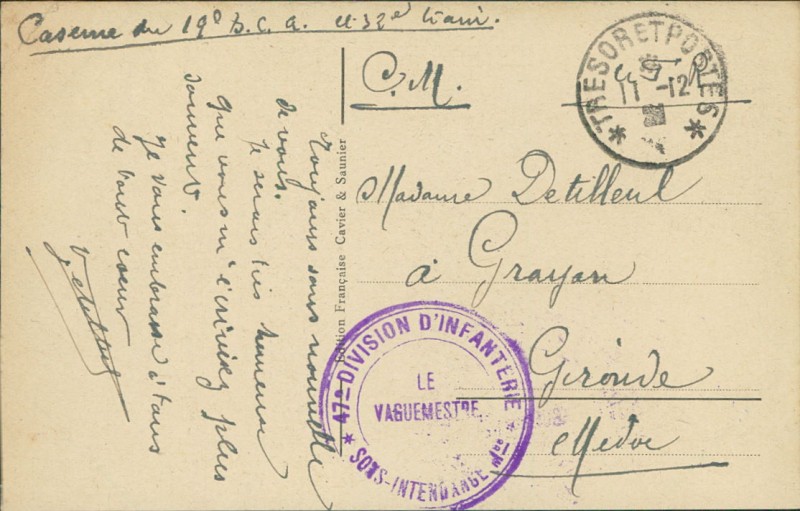 Caserne du 19e B.C.A. et 32e train.
C.M.
TRESOR ET POSTES
11 -12
Madame Detilleul
à Grayan
Gironde
Medoc
47e DIVISION D'INFANTERIE
LE
VAGUEMESTRE
SOUS-INTENDANCE Mre
Edition Française Cavier & Saunier
Toujours sans nouvelle
de vous.
Je serais très heureux
que vous m'écriviez plus
souvent.
Je vous embrasse à tous
de tout coeur